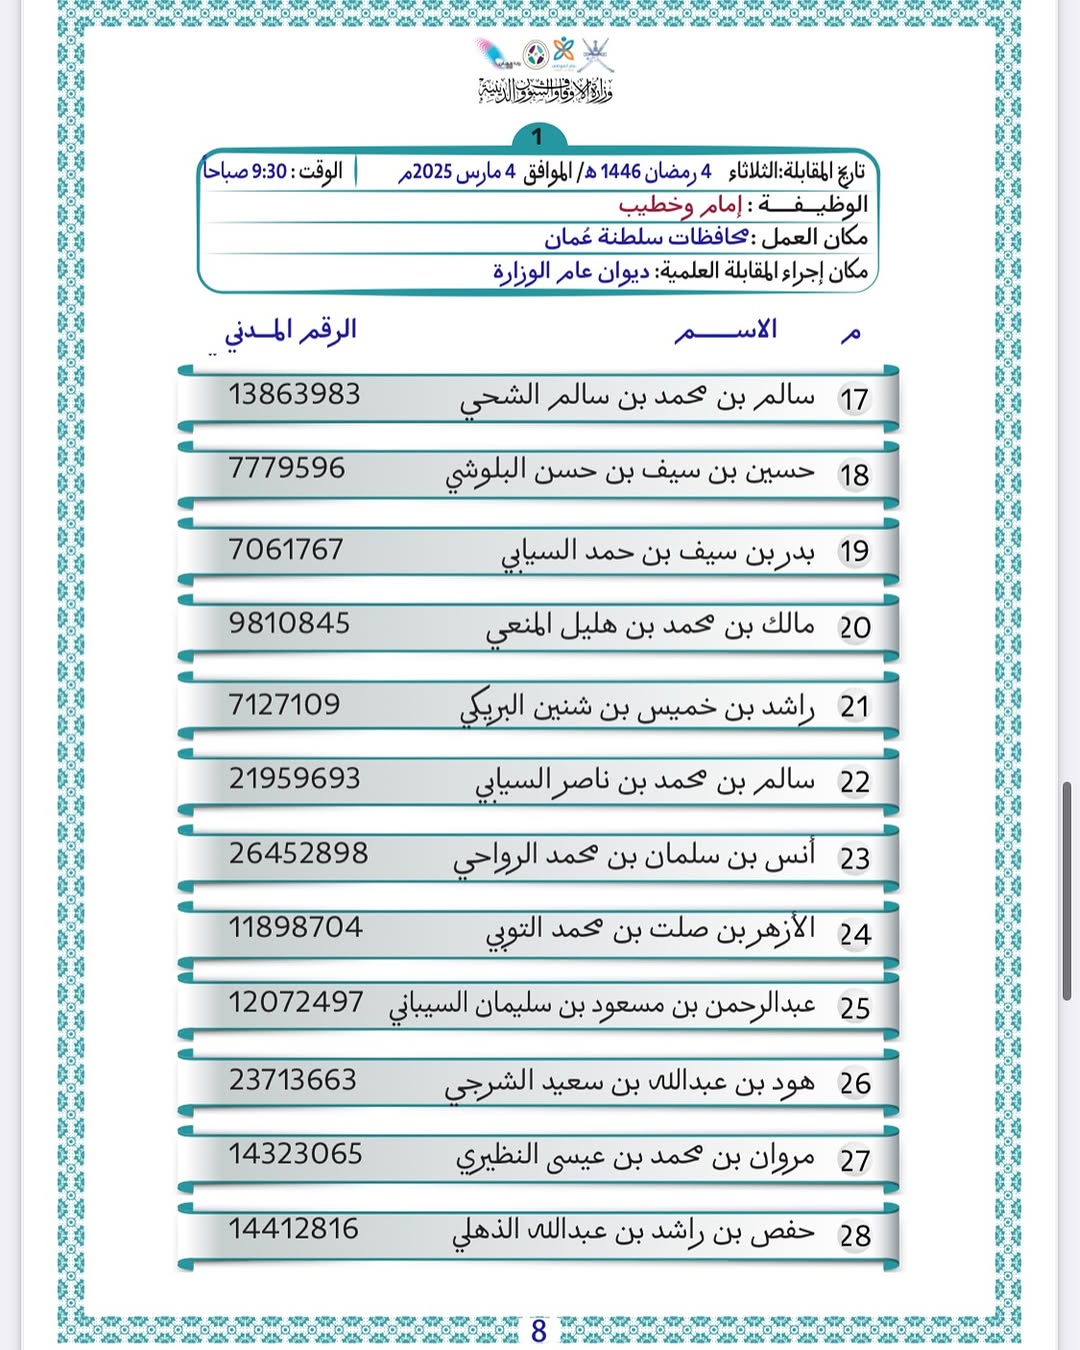 وزارة الأوقاف والشؤون الدينية
1
تاريخ المقابلة:الثلاثاء 4 رمضان 1446 ه/ الموافق 4 مارس 2025م | الوقت : 9:30 صباحاً
الوظيـفـــة : إمام وخطيب
مكان العمل :محافظات سلطنة عُمان
مكان إجراء المقابلة العلمية: ديوان عام الوزارة
م الاســـــم الرقم المـدني
17 سالم بن محمد بن سالم الشحي 13863983
18 حسين بن سيف بن حسن البلوشي 7779596
19 بدر بن سيف بن حمد السيابي 7061767
20 مالك بن محمد بن هليل المنعي 9810845
21 راشد بن خميس بن شنين البريكي 7127109
22 سالم بن محمد بن ناصر السيابي 21959693
23 أنس بن سلمان بن محمد الرواحي 26452898
24 الأزهر بن صلت بن محمد التوبي 11898704
25 عبدالرحمن بن مسعود بن سليمان السيباني 12072497
26 هود بن عبدالله بن سعيد الشرجي 23713663
27 مروان بن محمد بن عيسى النظيري 14323065
28 حفص بن راشد بن عبدالله الذهلي 14412816
8